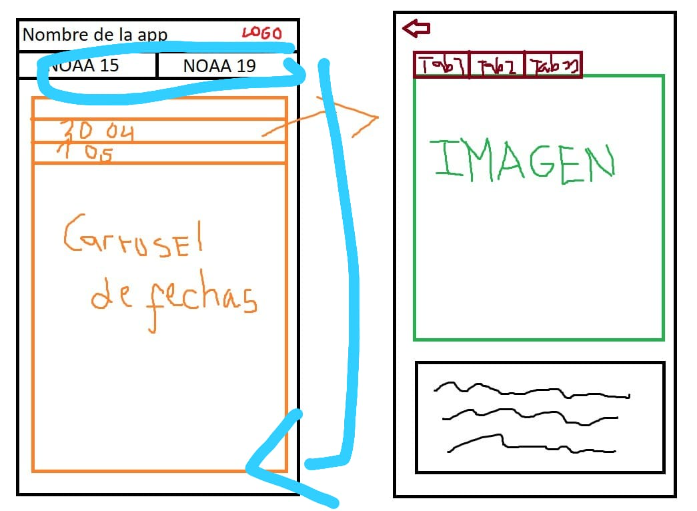 Nombre de la app LOGO
NOAA 15 NOAA 19
30 04
1 05
Carrusel
de fechas
Tab1 Tab2
IMAGEN